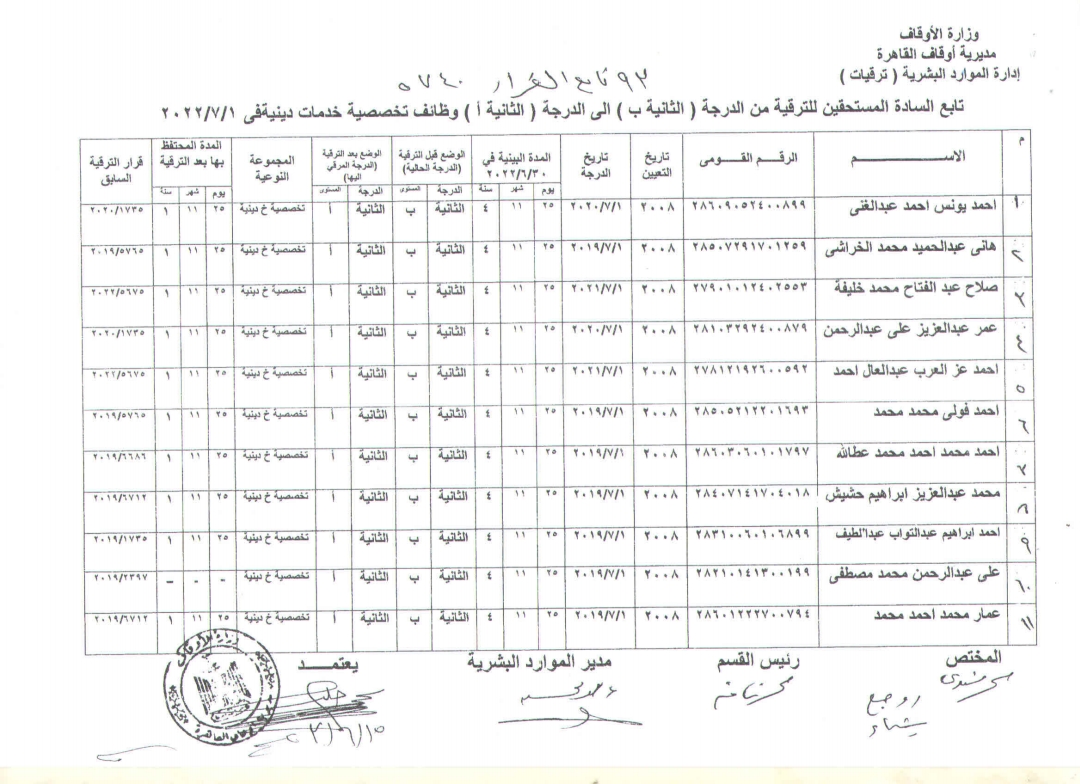 وزارة الأوقاف
مديرية أوقاف القاهرة
إدارة الموارد البشرية ( ترقيات )
٩٢ تابع القرار ٥٧٤٠
تابع السادة المستحقين للترقية من الدرجة ( الثانية ب ) الى الدرجة ( الثانية أ ) وظائف تخصصية خدمات دينيةفى ٢٠٢٢/٧/١
م الاســـــم الرقـم القـــومى تاريخ التعيين تاريخ الدرجة المدة البينية في ٢٠٢٢/٦/٣٠ الوضع قبل الترقية (الدرجة الحالية) الوضع بعد الترقية (الدرجة المرقي اليها) المجموعة النوعية المدة المحتفظ بها بعد الترقية قرار الترقية السابق
يوم شهر سنة الدرجة المستوى الدرجة المستوى يوم شهر سنة
١ احمد يونس احمد عبدالغنى ٢٨٦٠٩٠٥٢٤٠٠٨٩٩ ٢٠٠٨ ٢٠٢٠/٧/١ ٢٥ ١١ ٤ الثانية ب الثانية أ تخصصية خ دينية ٢٥ ١١ ١ ٢٠٢٠/١٧٣٥
٢ هانى عبدالحميد محمد الخراشى ٢٨٥٠٧٢٩١٧٠١٢٥٩ ٢٠٠٨ ٢٠١٩/٧/١ ٢٥ ١١ ٤ الثانية ب الثانية أ تخصصية خ دينية ٢٥ ١١ ١ ٢٠١٩/٥٧٦٥
٣ صلاح عبد الفتاح محمد خليفة ٢٧٩٠١٠١٢٤٠٢٥٥٣ ٢٠٠٨ ٢٠٢١/٧/١ ٢٥ ١١ ٤ الثانية ب الثانية أ تخصصية خ دينية ٢٥ ١١ ١ ٢٠٢٢/٥٦٧٥
٤ عمر عبدالعزيز على عبدالرحمن ٢٨١٠٣٢٩٢٤٠٠٨٧٩ ٢٠٠٨ ٢٠٢٠/٧/١ ٢٥ ١١ ٤ الثانية ب الثانية أ تخصصية خ دينية ٢٥ ١١ ١ ٢٠٢٠/١٧٣٥
٥ احمد عز العرب عبدالعال احمد ٢٧٨١٢١٩٢٦٠٠٥٩٢ ٢٠٠٨ ٢٠٢١/٧/١ ٢٥ ١١ ٤ الثانية ب الثانية أ تخصصية خ دينية ٢٥ ١١ ١ ٢٠٢٢/٥٦٧٥
٦ احمد فولى محمد محمد ٢٨٥٠٥٢١٢٢٠١٦٩٣ ٢٠٠٨ ٢٠١٩/٧/١ ٢٥ ١١ ٤ الثانية ب الثانية أ تخصصية خ دينية ٢٥ ١١ ١ ٢٠١٩/٥٧٦٥
احمد محمد احمد محمد عطاالله ٢٨٦٠٣٠٦٠١٠١٧٩٧ ٢٠٠٨ ٢٠١٩/٧/١ ٢٥ ١١ ٤ الثانية ب الثانية أ تخصصية خ دينية ٢٥ ١١ ١ ٢٠١٩/٦٦٨٦
محمد عبدالعزيز ابراهيم حشيش ٢٨٤٠٧١٤١٧٠٤٠١٨ ٢٠٠٨ ٢٠١٩/٧/١ ٢٥ ١١ ٤ الثانية ب الثانية أ تخصصية خ دينية ٢٥ ١١ ١ ٢٠١٩/٦٧١٢
٩ احمد ابراهيم عبدالتواب عبداللطيف ٢٨٣١٠٠٦٠١٠٦٨٩٩ ٢٠٠٨ ٢٠١٩/٧/١ ٢٥ ١١ ٤ الثانية ب الثانية أ تخصصية خ دينية ٢٥ ١١ ١ ٢٠١٩/١٧٣٥
١٠ على عبدالرحمن محمد مصطفى ٢٨٢١٠١٤١٣٠٠١٩٩ ٢٠٠٨ ٢٠١٩/٧/١ ٢٥ ١١ ٤ الثانية ب الثانية أ تخصصية خ دينية - - - ٢٠١٩/٢٣٩٧
١١ عمار محمد احمد محمد ٢٨٦٠١٢٢٢٧٠٠٧٩٤ ٢٠٠٨ ٢٠١٩/٧/١ ٢٥ ١١ ٤ الثانية ب الثانية أ تخصصية خ دينية ٢٥ ١١ ١ ٢٠١٩/٦٧١٢
المختص رئيس القسم مدير الموارد البشرية يعتمـــد
روجع
شيماء